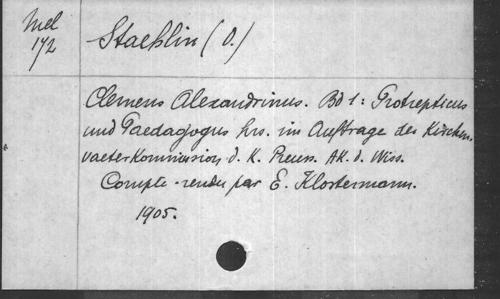 Mel
172
Staehlin (O.)
Clemens Alexandrinus. Bd 1: Protrepticus
und Paedagogus hrs. im Auftrage der Kirchen,
vaeter Kommission d. K. Preuss. AK. d. Wiss.
Compte-rendu par E. Klostermann.
1905.